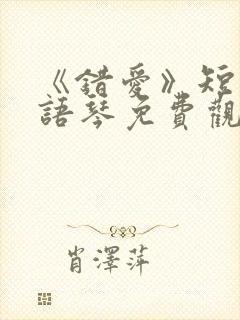 《錯愛》短
語琴免費觀
肖澤萍